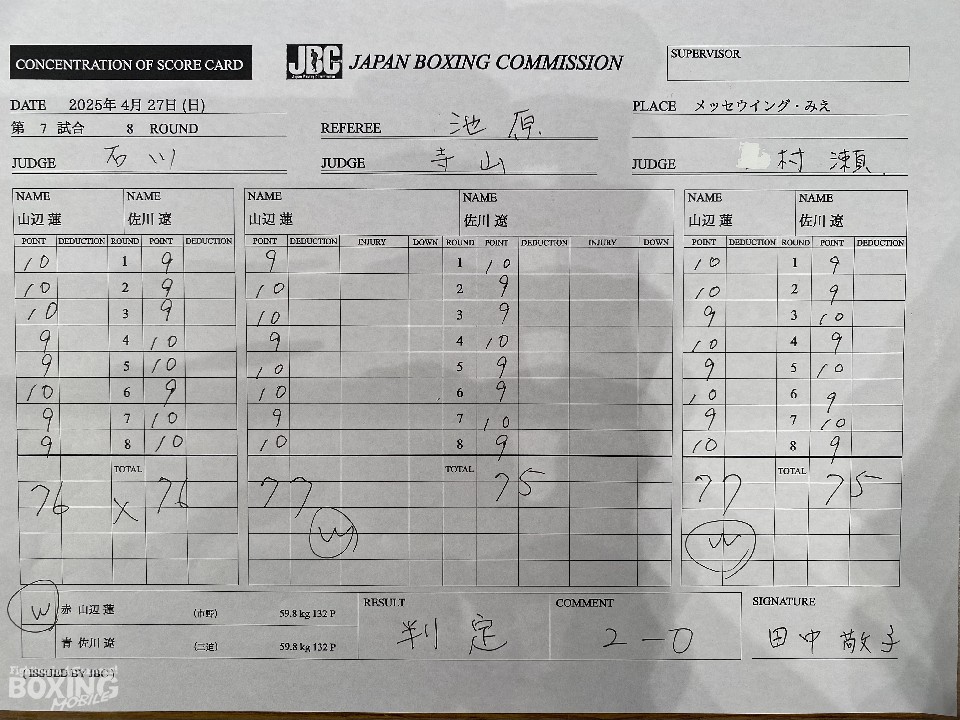 CONCENTRATION OF SCORE CARD JBC JAPAN BOXING COMMISSION SUPERVISOR
DATE 2025年 4月 27日 (日) PLACE メッセウイング・みえ
第 7 試合 8 ROUND REFEREE 池原
JUDGE 石川 JUDGE 寺山 JUDGE 村瀬
NAME NAME NAME NAME NAME NAME
山辺 蓮 佐川 遼 山辺 蓮 佐川 遼 山辺 蓮 佐川 遼
POINT DEDUCTION ROUND POINT DEDUCTION POINT DEDUCTION INJURY DOWN ROUND POINT DEDUCTION INJURY DOWN POINT DEDUCTION ROUND POINT DEDUCTION
10 1 9 9 1 10 10 1 9
10 2 9 10 2 9 10 2 9
10 3 9 10 3 9 9 3 10
9 4 10 9 4 10 10 4 9
9 5 10 10 5 9 9 5 10
10 6 9 10 6 9 10 6 9
9 7 10 9 7 10 9 7 10
9 8 10 10 8 9 10 8 9
TOTAL TOTAL TOTAL
76 X 76 77 75 77 75
W W
W 赤 山辺 蓮 (市野) 59.8 kg 132 P RESULT COMMENT SIGNATURE
青 佐川 遼 (三迫) 59.8 kg 132 P 判定 2-0 田中 敬子
( ISSUED BY JBC )
BOXING
MOBILE